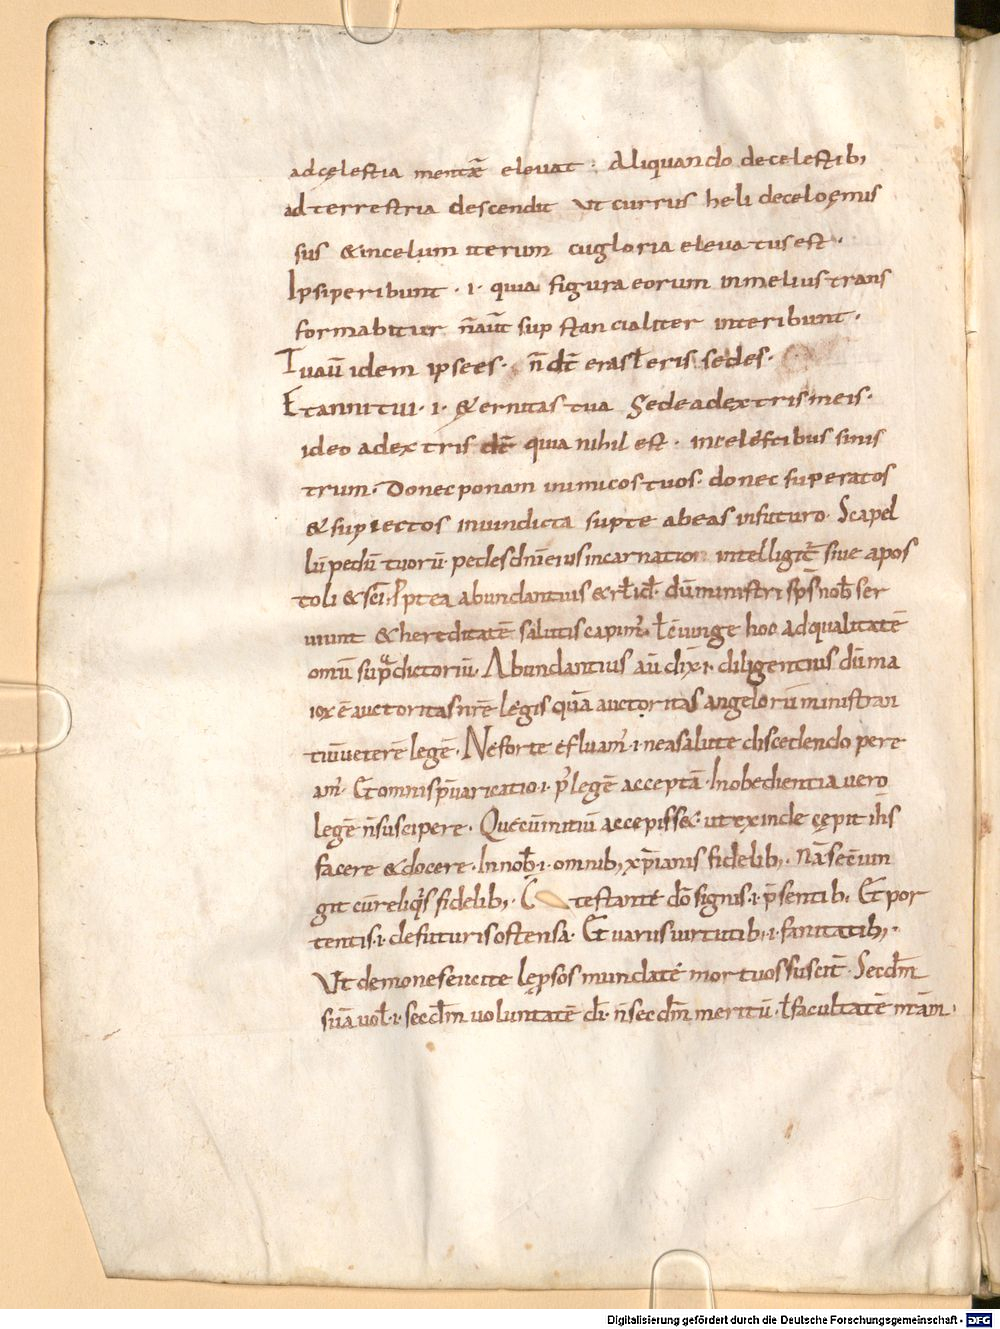 adcęlestia mentē elevat : Aliquando decelestib;
adterrestria descendit ut currus heli decelo ęmis
sus &incelum iterum cūgloria elevatus est ·
Ipsiperibunt · i · quia figura eorum inmelius trans
formabitur n̄aūt supstancialiter interibunt ·
Tuaūidem ipsees · n̄ dt̄ erasłeris sedes ·
Etannitui · i · &ernitas tua Sedeadextrismeis ·
ideo adextris dt̄ quia nihil est · incelestibus sinis
trum · Donecponam inimicostuos · donec superatos
&supiectos inuindicta supte abeas infuturo · Scapel
lūpedū tuorū · pedesdn̄ieiusincarnation intelligit̄ sive apos
toli &sc̄i · Ꝓptea abundantius &rł id · dūministri sp̄s nob̄ ser
uiunt &hereditatē salutiscapim̄ · łc̄iunge hoc adqualitatē
omū sup̄dictoriū · Abundantius aū dix̄ · i · diligentius dūma
ior ē auctoritas nr̄e legis quā auctoritas angelorūministran
tiūueterē legē · Neforte efluam̄ · i · neasalute discedendo pere
am̄ · Etomnisp̄uaricatio · i · p̄ legē acceptā · Inobedientia uero
legē n̄suscipere · Quęcūnitiū accepisset · utexinde cępit ih̄s
facere &docere · Innob̄ · i · omnib; xp̄ianis fidelib; · nā sec̄iun
git cūreliq̄s fidelib; · Cotestante dō signis · i · p̄sentib; Et por
tentis · i · defuturisostensa · Et uariisuirtutib; · i · sanitatib; ·
Ut demoneseicite lęprsos mundate mortuossuscit̄ · Secdm̄
suā uol̄ · i · secdm̄ uoluntatē dī · n̄secdm̄ meritū · łfacultatē nr̄am ·
Digitalisierung gefördert durch die Deutsche Forschungsgemeinschaft - DFG